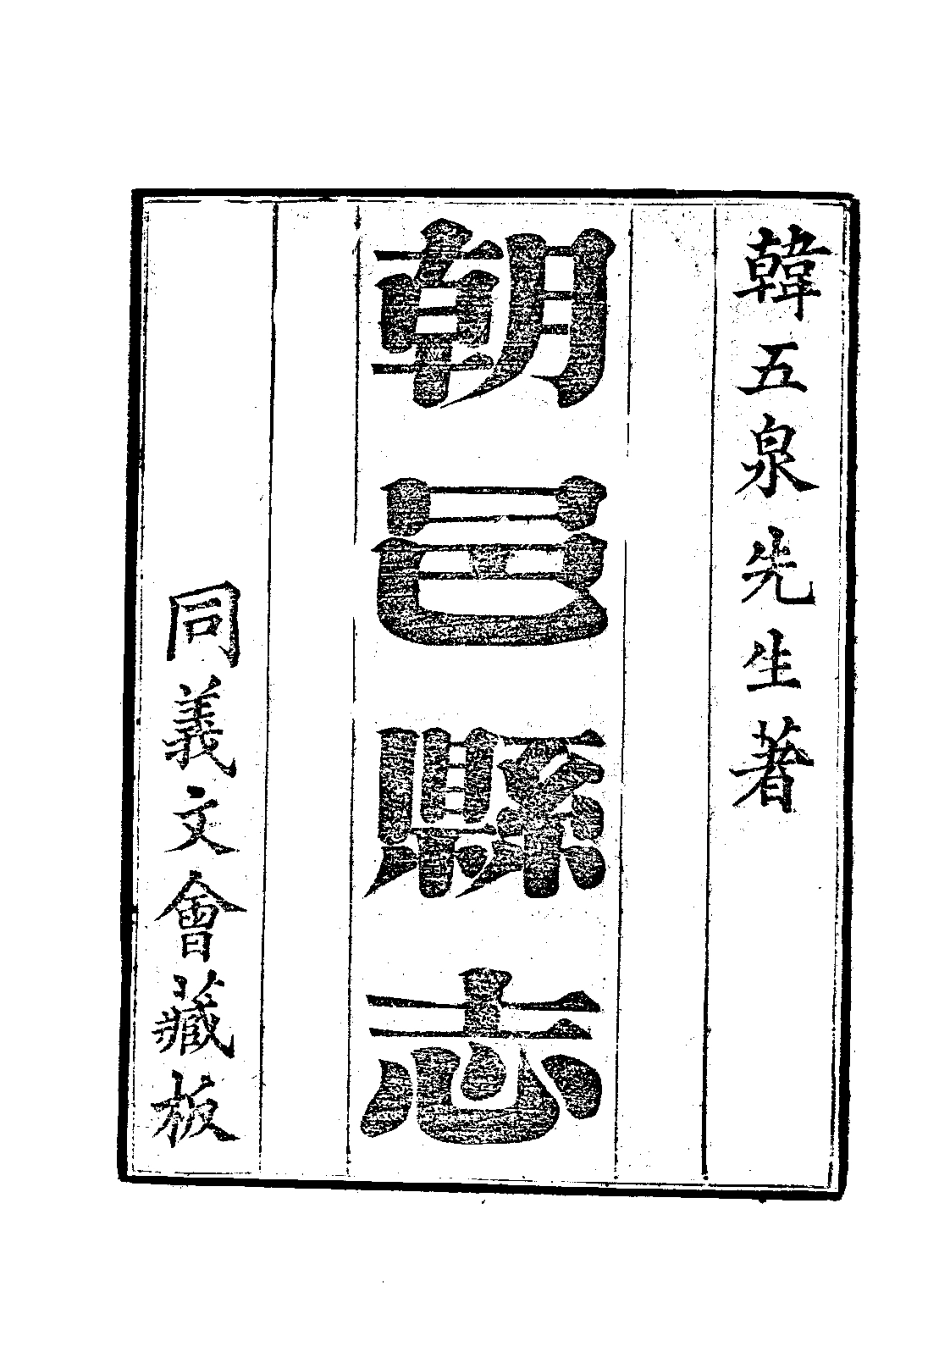 韓五泉先生著
朝邑縣志
同義文會藏板